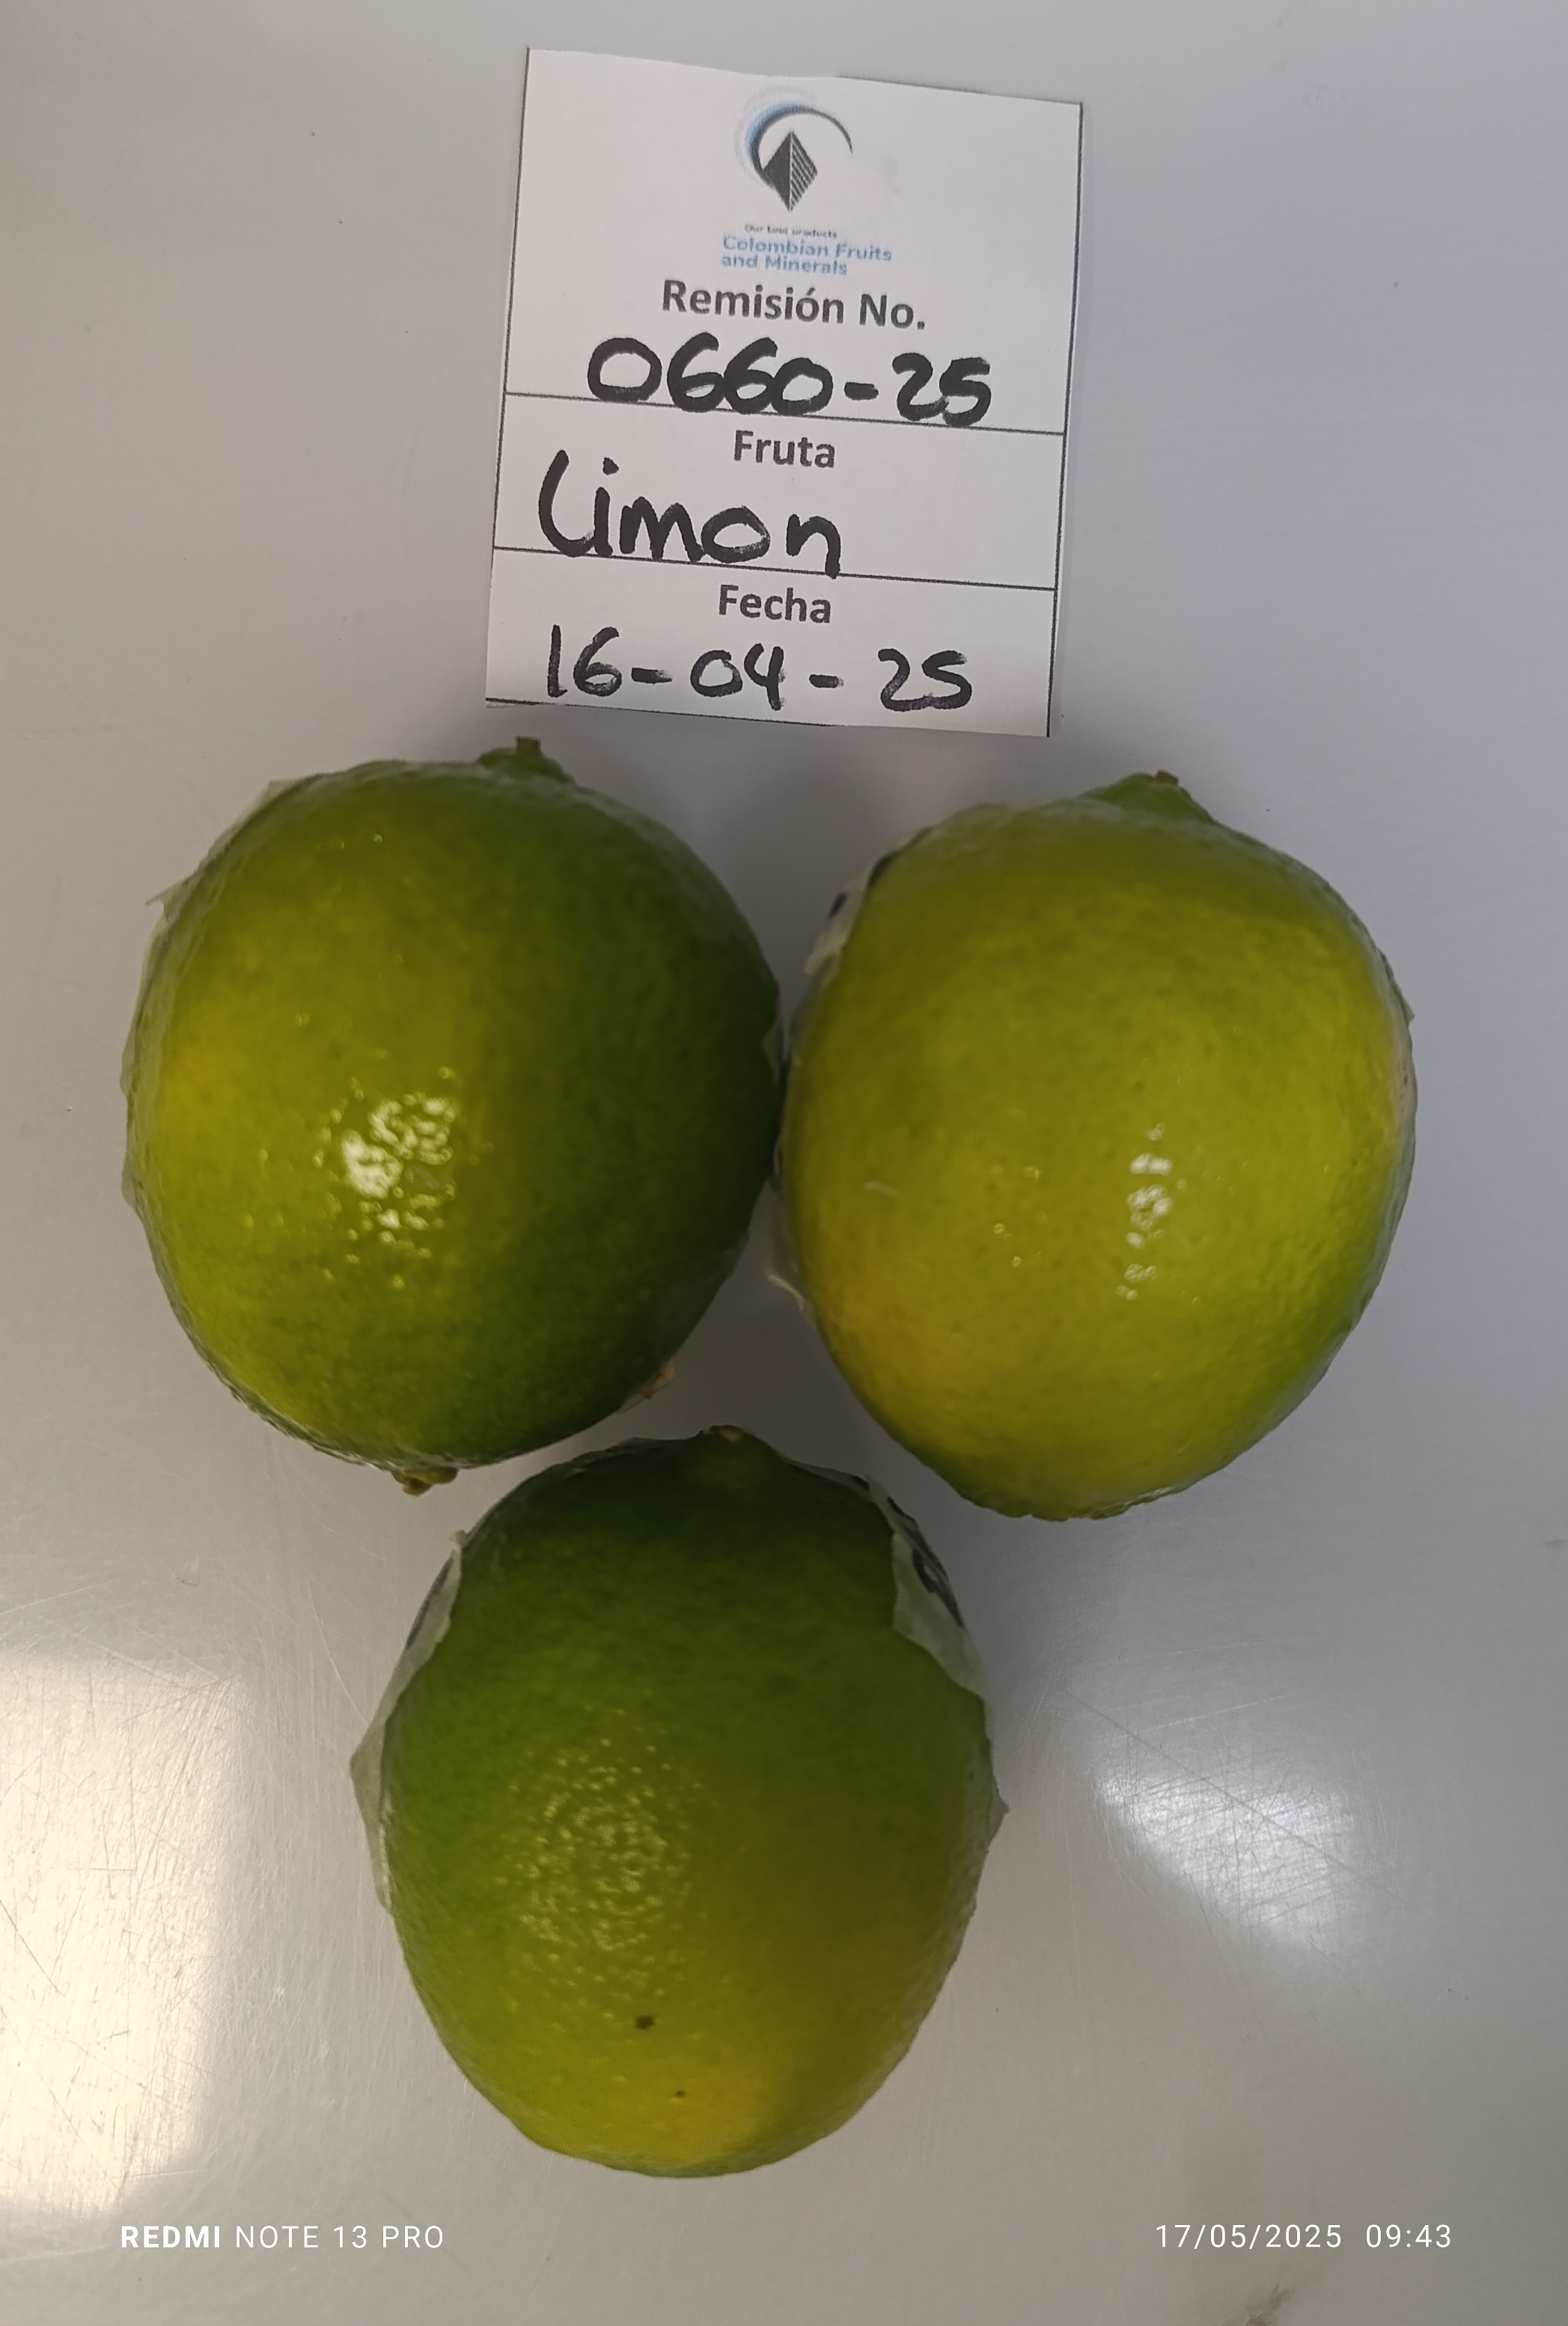 Our land products
Colombian Fruits
and Minerals
Remisión No.
0660-25
Fruta
Limon
Fecha
16-04-25
REDMI NOTE 13 PRO
17/05/2025 09:43